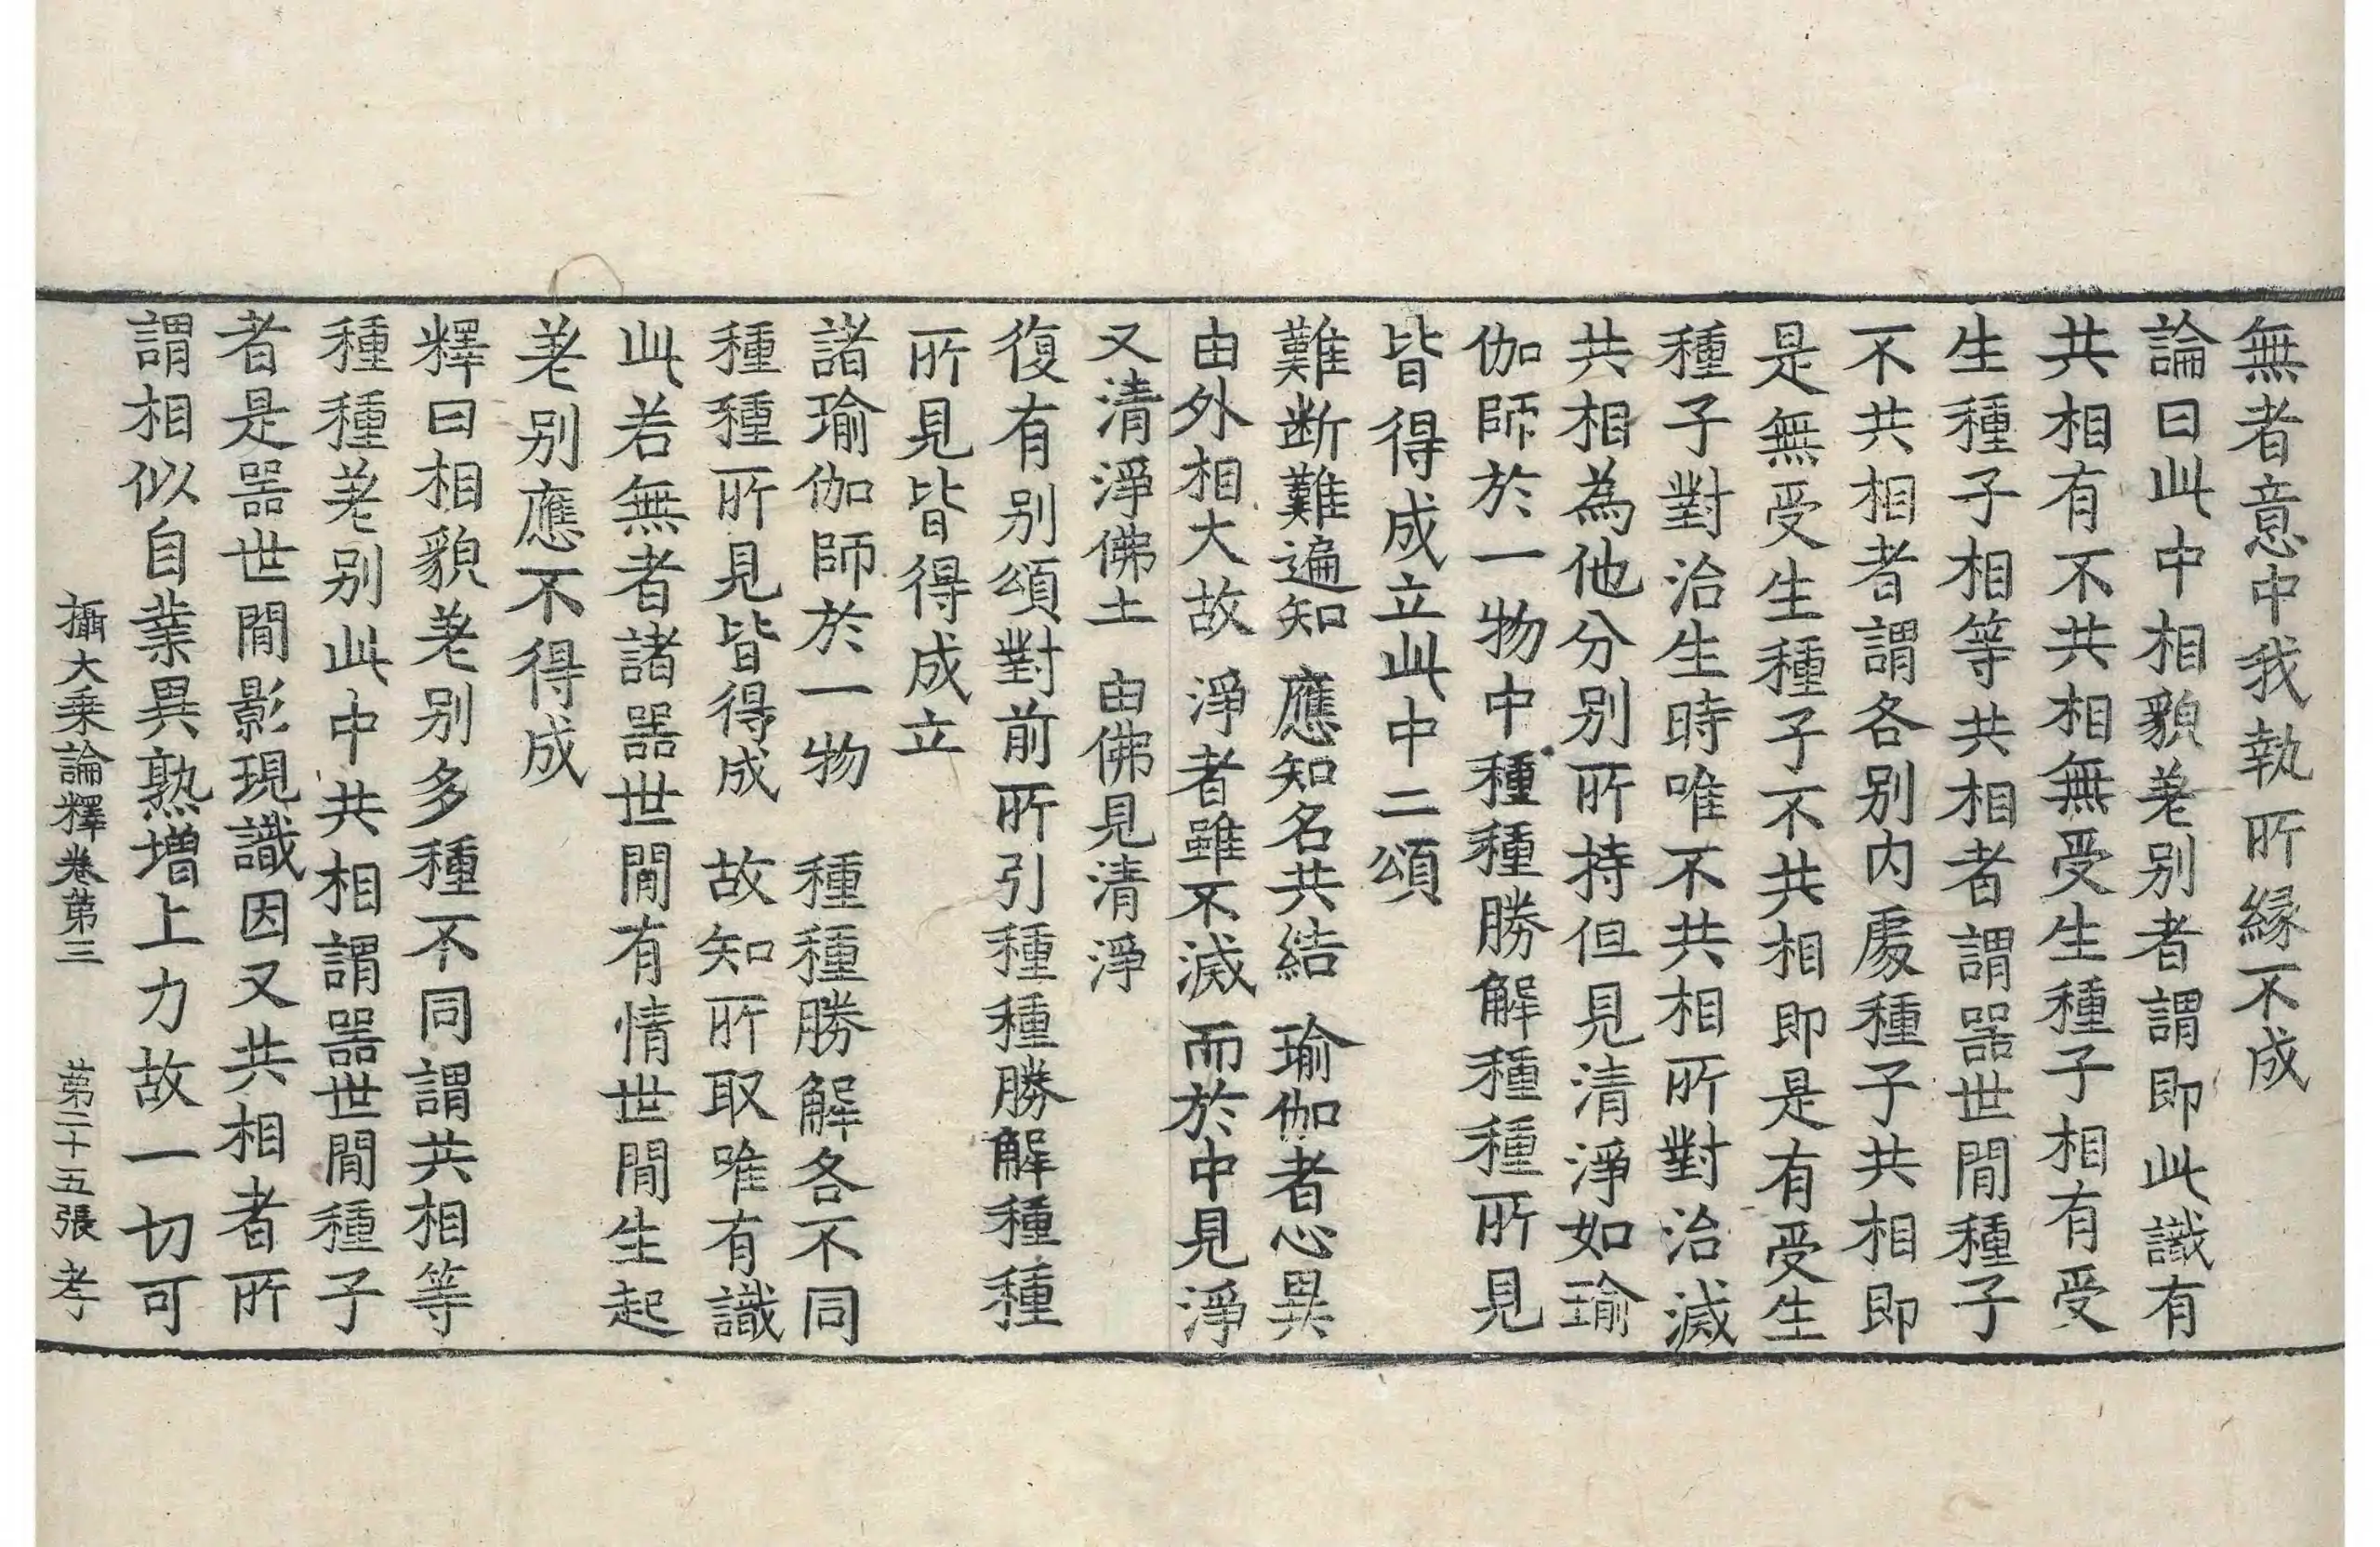 無者意中我執所縁不成
論曰此中相貌差别者謂即此識有
共相有不共相無受生種子相有受
生種子相等共相者謂噐世間種子
不共相者謂各别内處種子共相即
是無受生種子不共相即是有受生
種子對治生時唯不共相所對治滅
共相為他分别所持但見清淨如瑜
伽師於一物中種種勝解種種所見
皆得成立此中二頌
難断難遍知　應知名共結　瑜伽者心異
由外相大故　淨者雖不滅　而於中見淨
又清淨佛土　由佛見清淨
復有别頌對前所引種種勝解種種
所見皆得成立
諸瑜伽師於一物　種種勝解各不同
種種所見皆得成　故知所取唯有識
此若無者諸噐世間有情世間生起
差别應不得成
釋曰相貌差别多種不同謂共相等
種種差别此中共相謂噐世間種子
者是噐世間影現識因又共相者所
謂相似自業異熟增上力故一切可
攝大乗論釋卷第三　第二十五張　孝